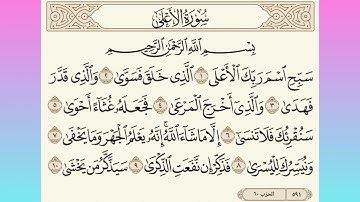 سُورَةُ الأَعْلَى
بِسْمِ اللَّهِ الرَّحْمَٰنِ الرَّحِيمِ
سَبِّحِ اسْمَ رَبِّكَ الْأَعْلَى ١ الَّذِي خَلَقَ فَسَوَّىٰ ٢ وَالَّذِي قَدَّرَ
فَهَدَىٰ ٣ وَالَّذِي أَخْرَجَ الْمَرْعَىٰ ٤ فَجَعَلَهُ غُثَاءً أَحْوَىٰ ٥
سَنُقْرِئُكَ فَلَا تَنسَىٰ ٦ إِلَّا مَا شَاءَ اللَّهُ ۚ إِنَّهُ يَعْلَمُ الْجَهْرَ وَمَا يَخْفَىٰ ٧
وَنُيَسِّرُكَ لِلْيُسْرَىٰ ٨ فَذَكِّرْ إِن نَّفَعَتِ الذِّكْرَىٰ ٩ سَيَذَّكَّرُ مَن يَخْشَىٰ ١٠
٥٩١
الحزب ٦٠